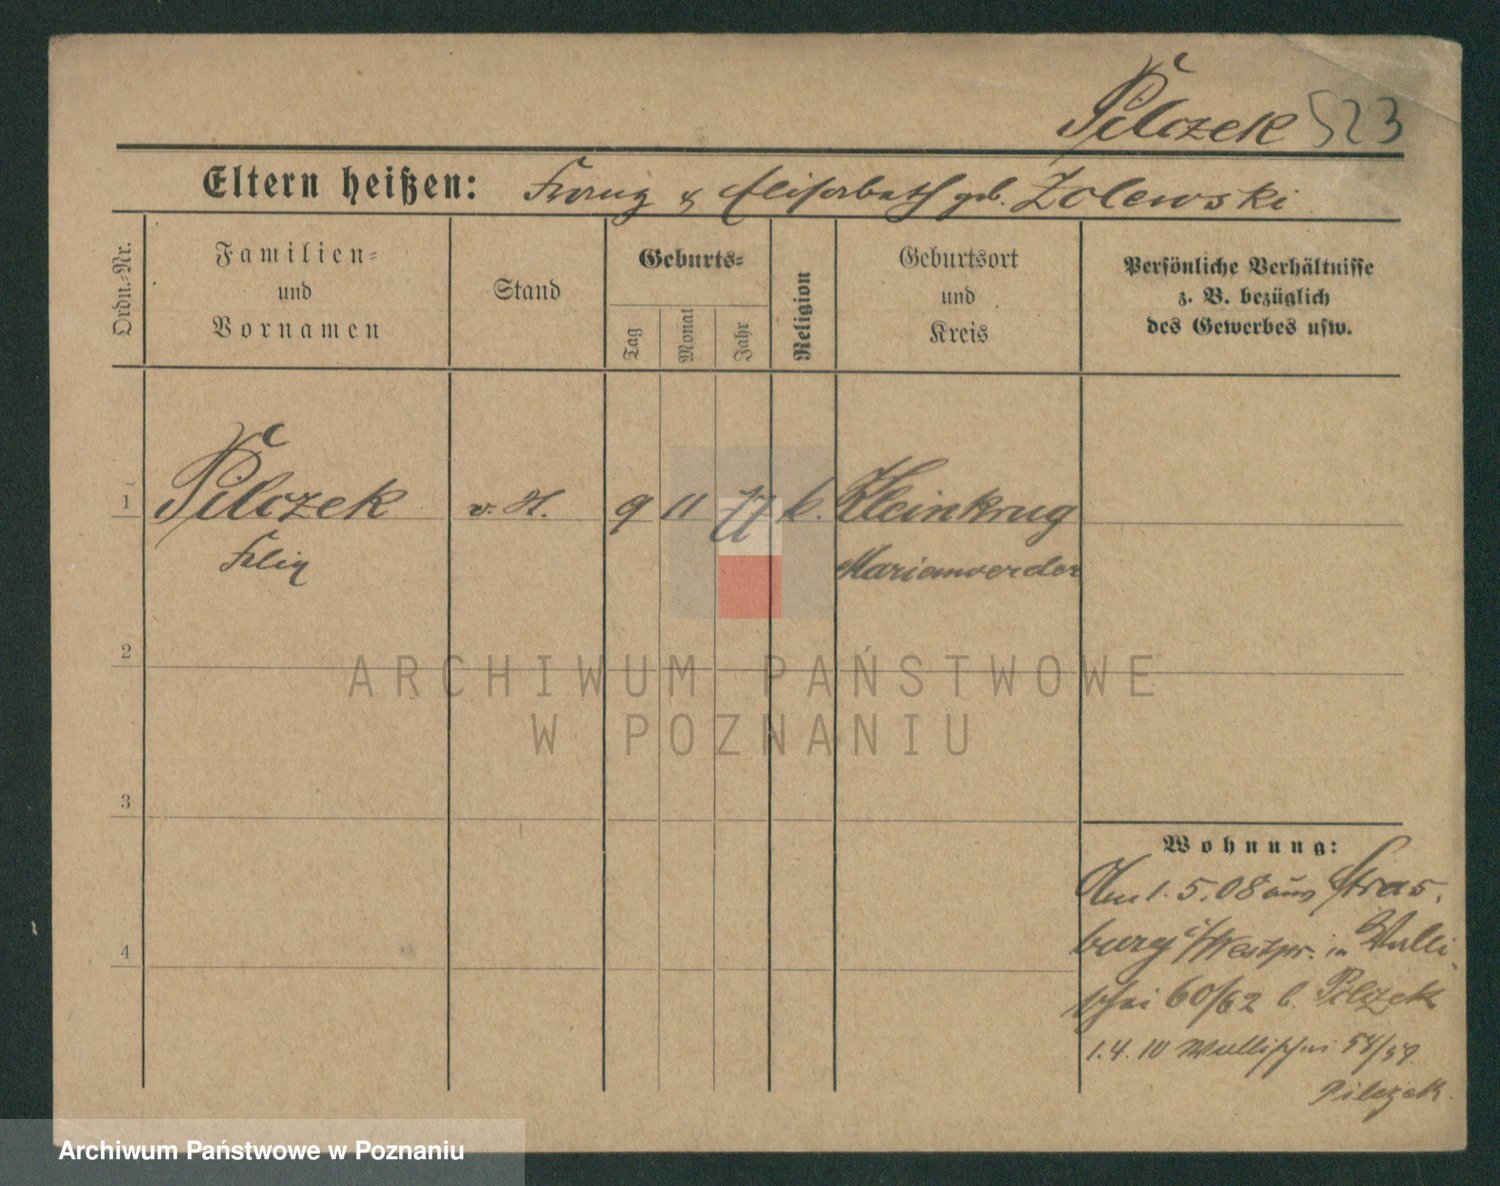 Pilczek 523
Eltern heißen: Franz & Elisabeth geb. Zolewski
Ordn.-Nr.
Familien-
und
Vornamen
Stand
Geburts-
Tag
Monat
Jahr
Religion
Geburtsort
und
Kreis
Persönliche Verhältnisse
z. B. bezüglich
des Gewerbes usw.
1 Pilczek v. H. 9 11 77 k. Kleinkrug
Felix Marienwerder
2
3
4
Wohnung:
Am 1.5.08 aus Stras-
burg i/Westpr. in Walli-
schei 60/62 b. Pilczek
1.4.10 Wallischei 58/59.
Pilczek.
ARCHIWUM PAŃSTWOWE
W POZNANIU
Archiwum Państwowe w Poznaniu